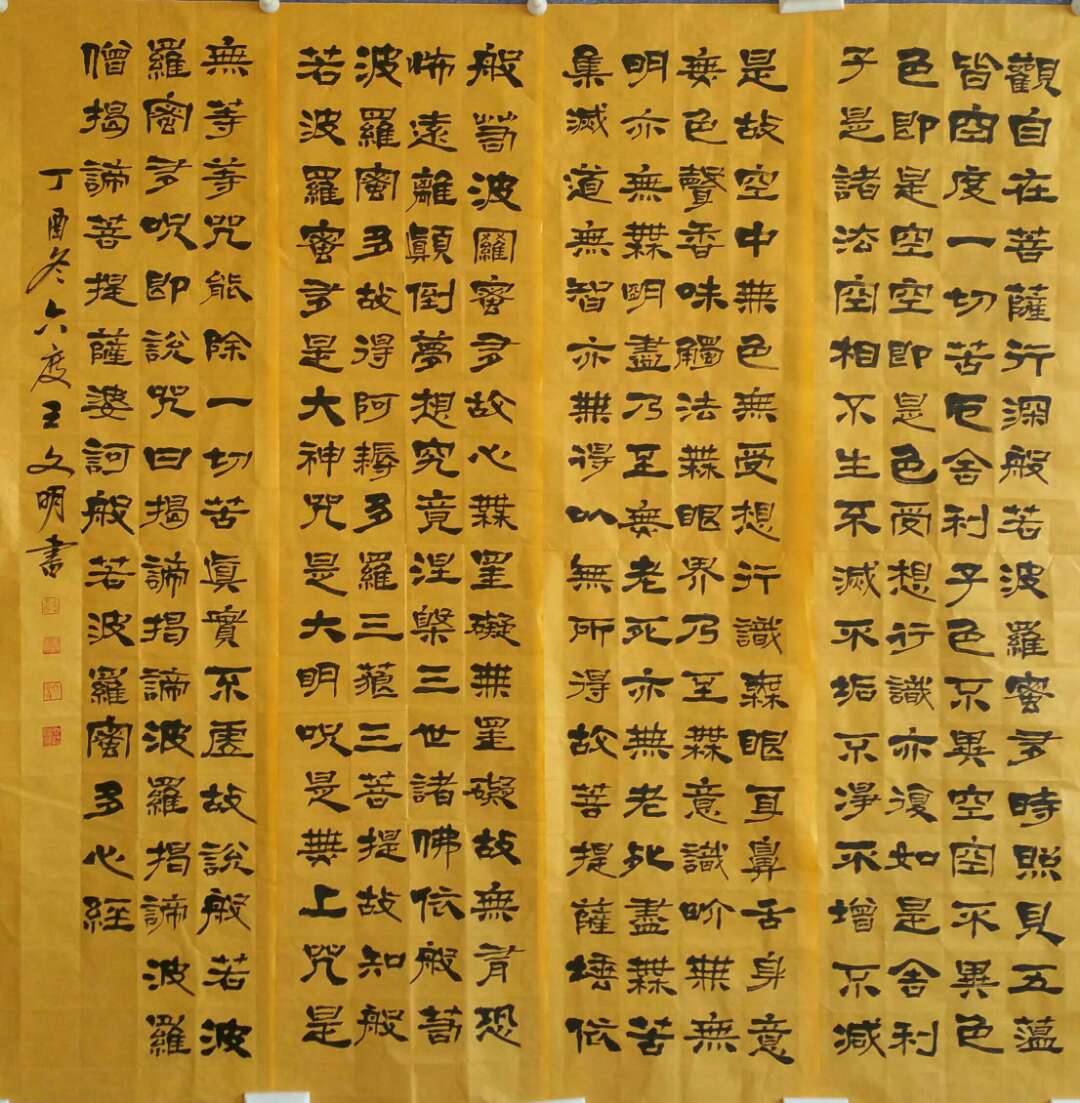 觀自在菩薩行深般若波羅蜜多時照見五蘊
皆空度一切苦厄舍利子色不異空空不異色
色即是空空即是色受想行識亦復如是舍利
子是諸法空相不生不滅不垢不淨不增不減
是故空中無色無受想行識無眼耳鼻舌身意
無色聲香味觸法無眼界乃至無意識界無無
明亦無無明盡乃至無老死亦無老死盡無苦
集滅道無智亦無得以無所得故菩提薩埵依
般若波羅蜜多故心無罣礙無罣礙故無有恐
怖遠離顛倒夢想究竟涅槃三世諸佛依般若
波羅蜜多故得阿耨多羅三藐三菩提故知般
若波羅蜜多是大神咒是大明咒是無上咒是
無等等咒能除一切苦真實不虛故說般若波
羅蜜多咒即說咒曰揭諦揭諦波羅揭諦波羅
僧揭諦菩提薩婆訶般若波羅蜜多心經
丁酉冬六度王文明書